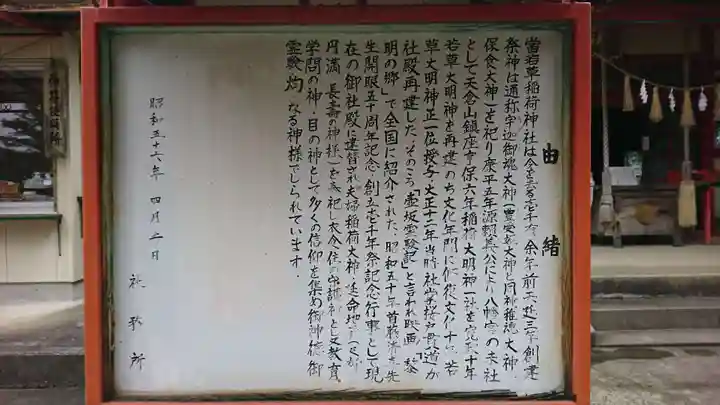 由緒
當若草稲荷神社は今を去る壱千有余年前天延三年創業
祭神は通称宇迦御魂大神(豊受大神と同神稚徳大神
保食大神)を祀り康平五年源頼義公により八幡宮の末社
として天倉山鎮座享保六年稲荷大明神一社を寛政十年
若草大明神を再建のち文化年間に
草大明神正一位授与大正十二年当時社掌桜戸貫八道が
社殿再建した。そのころ「壷坂霊験記」と言われ映画、「黎
明の郷」で全国に紹介された、昭和五十年首藤先
生開眼五十周年記念、創立壱千年祭記念行事として現
在の御社殿に建替され夫婦稲荷大神(生命地
円満、長寿の神様)を祀し衣食住の守護神とし教育
学問の神・目の神として多くの信仰を集め御神徳御
霊験灼なる神様でしられています。
昭和五十六年四月二日
社務所